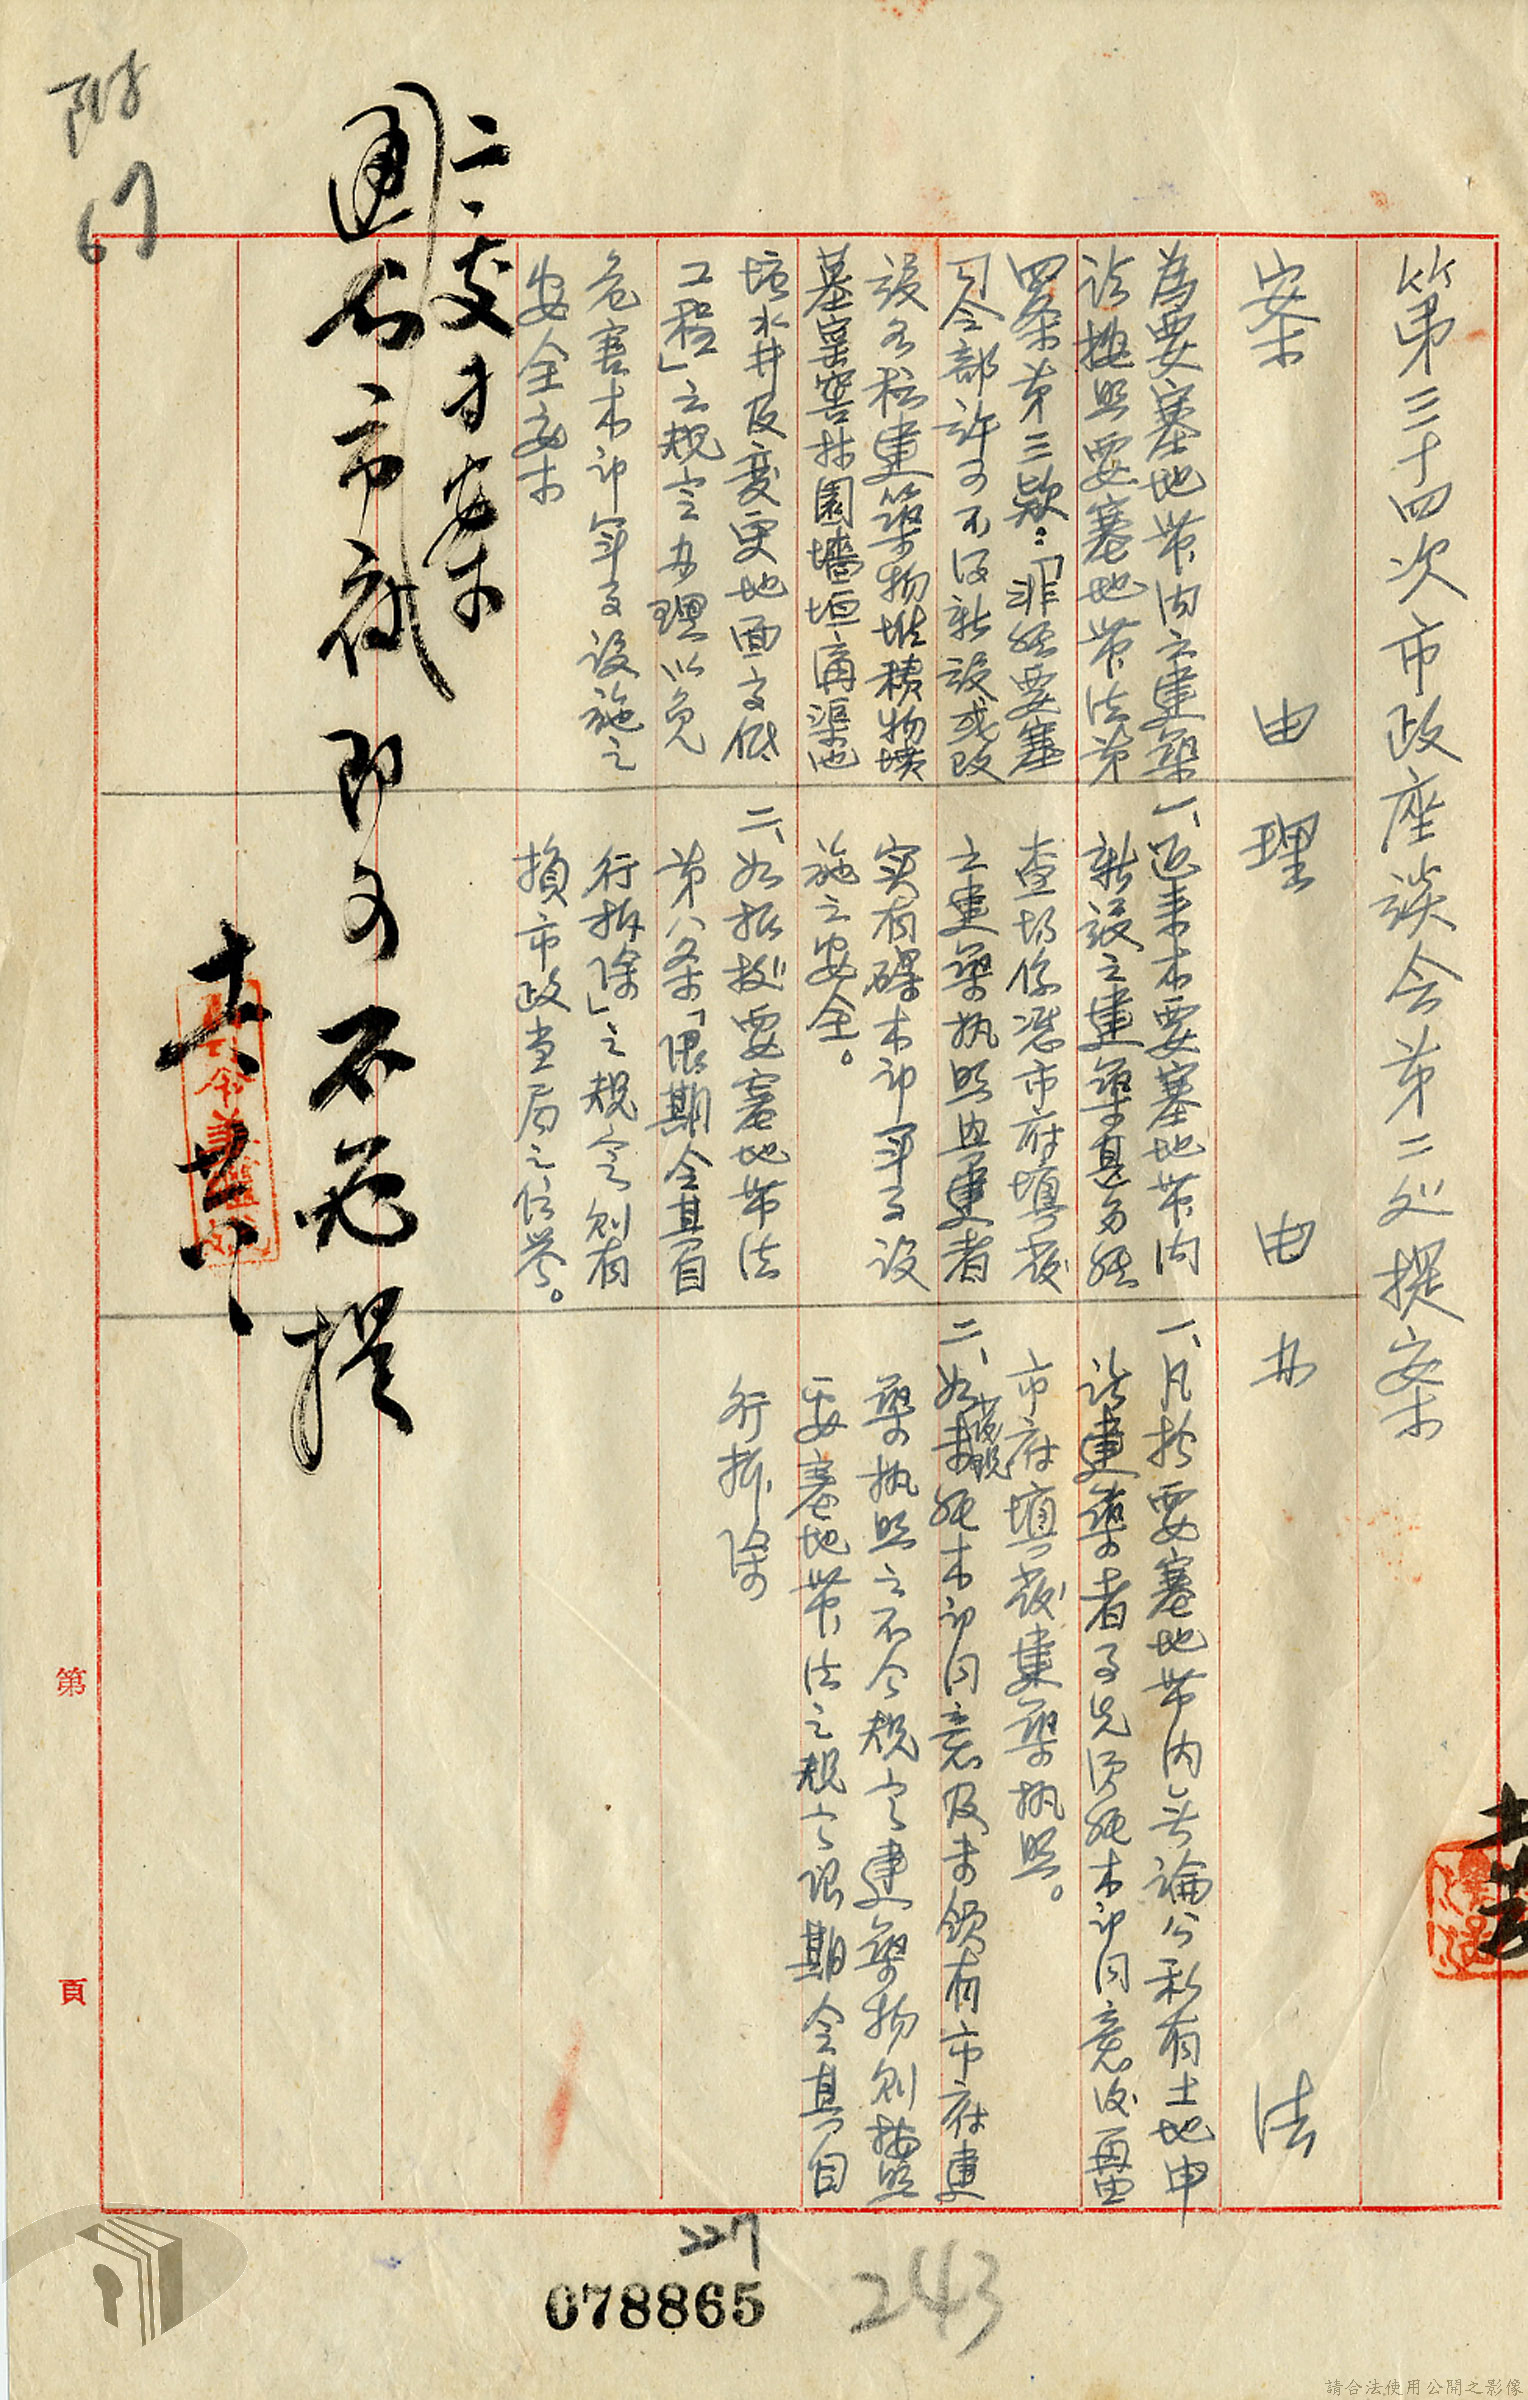 第三十四次市政座談会第二処提案
案由
理由
办法
為要塞地带内之建築
請按照要塞地带法第
四条第三款:「非經要塞
司令部許可不得新設或改
設各種建築物堆積物墳
墓窯窖林園墻垣溝渠池
塘水井及变更地面高低
工程」之規定办理以免
危害本部軍事設施之
安全案
一、近来本要塞地带内
新設之建築甚多經
查均係憑市府填發
之建築执照興建者
实有礙本部軍事設
施之安全。
二、如按據要塞地带法
第八条「限期令其自
行拆除」之規定則有
損市政当局之信誉。
一、凡於要塞地带内无論公私有土地申
請建築者事先須經本部同意後再由
市府填發建築执照。
二、如發現未經本部同意及未領有市府建
築执照之不合規定建築物則按照
要塞地带法之規定限期令其自
行拆除
二、交才案
市府即可不必提
附
67
第
頁
227
243
078865
請合法使用公開之影像